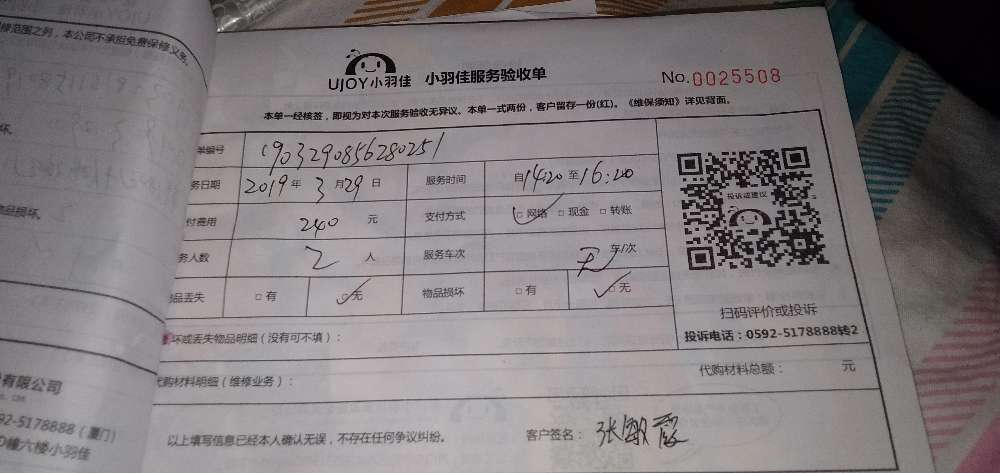 修范围之列，本公司不承担免费保修义务。
坏.
物品损坏.
有限公司
92-5178888（厦门）
D幢六楼小羽佳
UJOY小羽佳 小羽佳服务验收单 No.0025508
本单一经核签，即视为对本次服务验收无异议。本单一式两份，客户留存一份(红)。《维保须知》详见背面。
单编号 1903290856280251
务日期 2019年3月29日 服务时间 自14:20至16:20
付费用 240 元 支付方式 □网络 □现金 □转账
务人数 2 人 服务车次 车/次
物品丢失 □有 □无 物品损坏 □有 □无
投诉或建议
扫码评价或投诉
投诉电话：0592-5178888转2
坏或丢失物品明细（没有可不填）：
代购材料明细（维修业务）：
代购材料总额： 元
以上填写信息已经本人确认无误，不存在任何争议纠纷。 客户签名：张敏霞